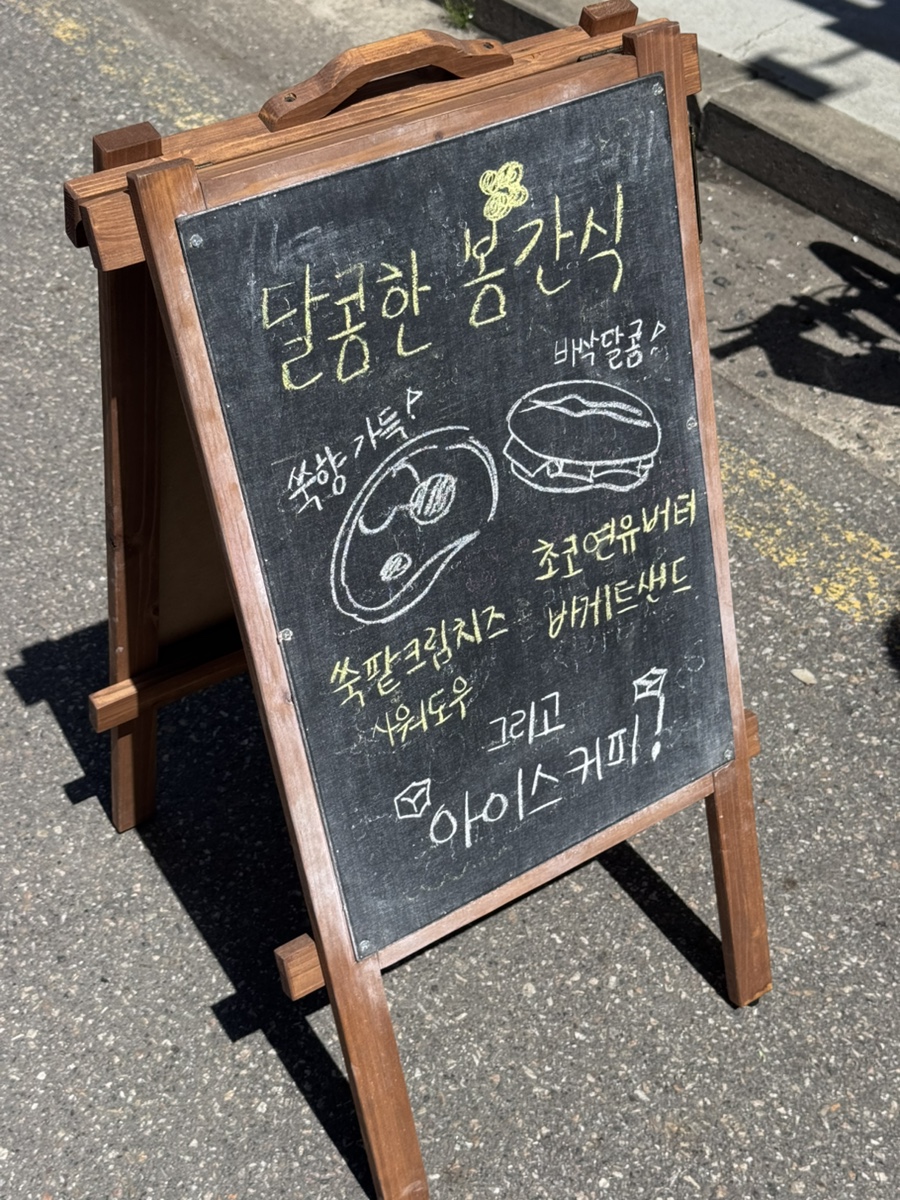 달콤한 봄간식
바삭달콤!
쑥향 가득!
초코연유버터
바게트샌드
쑥팥크림치즈
사워도우
그리고
아이스커피!